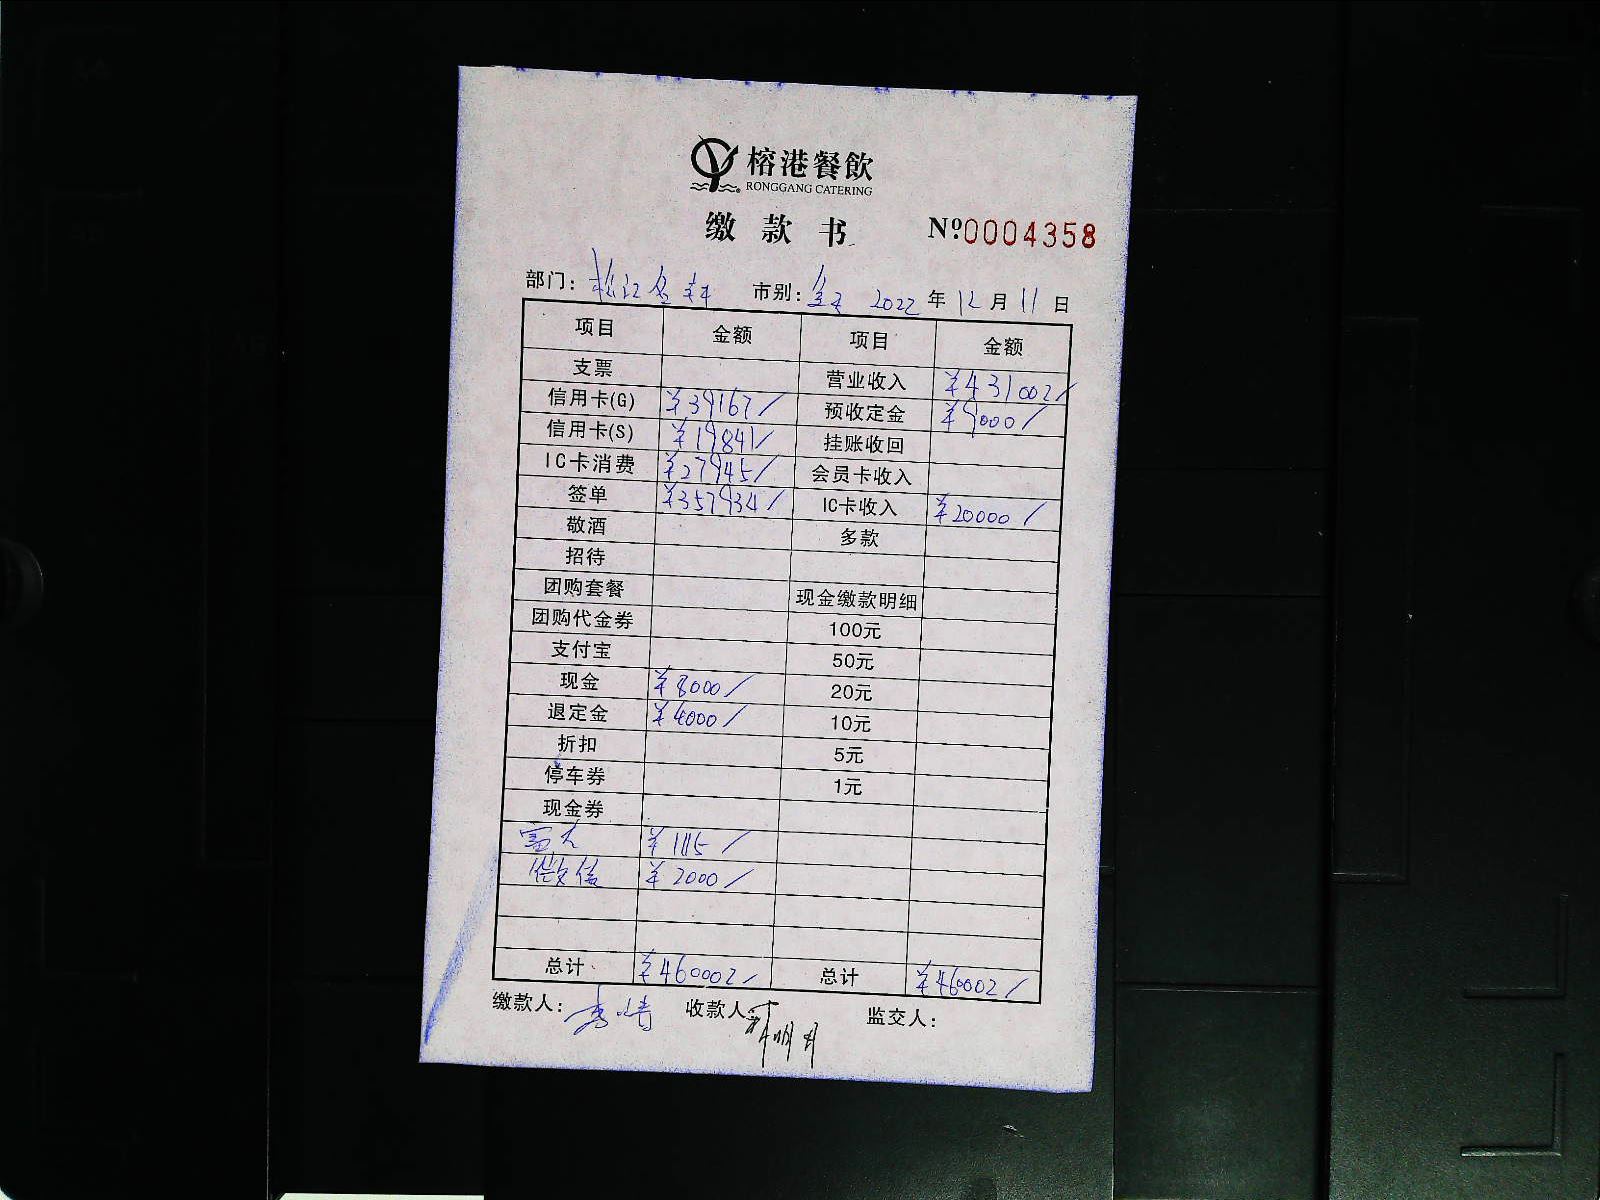 榕港餐飲
RONGGANG CATERING
缴款书 Nº:0004358
部门: 松江 市别: 全天 2022年12月11日
项目 金额 项目 金额
支票 营业收入 ¥431002/
信用卡(G) ¥39167/ 预收定金 ¥9000/
信用卡(S) ¥19841/ 挂账收回
IC卡消费 ¥27945/ 会员卡收入
签单 ¥357934/ IC卡收入 ¥20000/
敬酒 多款
招待
团购套餐 现金缴款明细
团购代金券 100元
支付宝 50元
现金 ¥8000/ 20元
退定金 ¥4000/ 10元
折扣 5元
停车券 1元
现金券
富友 ¥1115/
微信 ¥2000/
总计 ¥460002/ 总计 ¥460002/
缴款人: 收款人: 监交人: